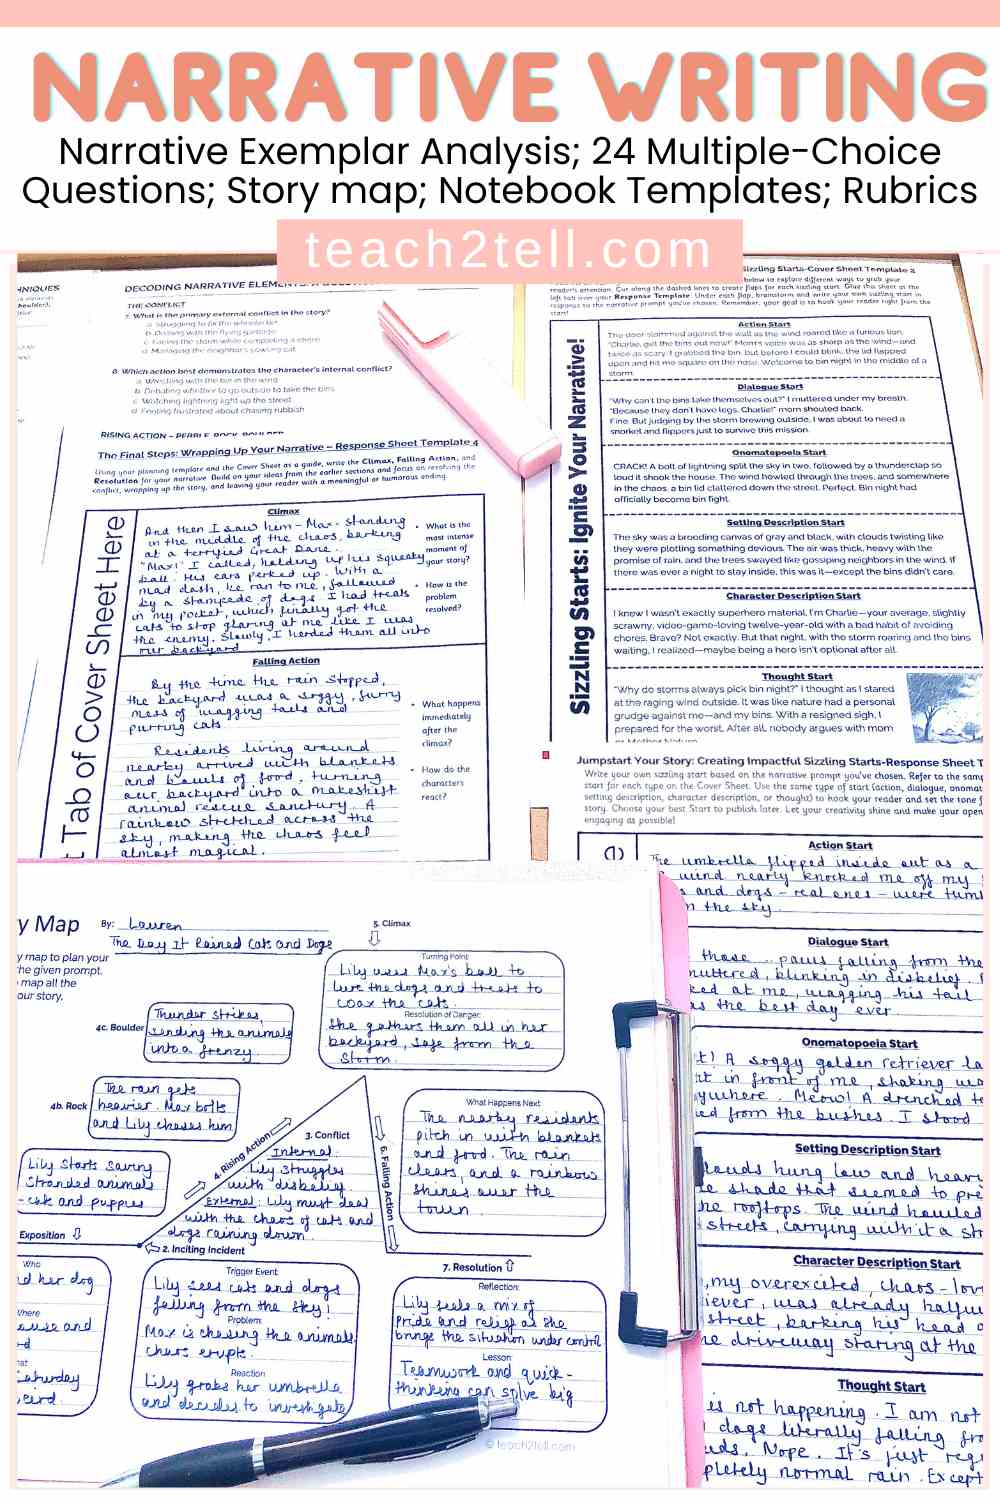 NARRATIVE WRITING
Narrative Exemplar Analysis; 24 Multiple-Choice
Questions; Story map; Notebook Templates; Rubrics
teach2tell.com
HNIQUES
DECODING NARRATIVE ELEMENTS: A
THE CONFLICT
7. What is the primary external conflict in the story?
a. Struggling to fix the wheelie bin
b. Dealing with the flying garbage
c. Facing the storm while completing a chore
d. Managing the neighbor's yowling cat
8. Which action best demonstrates the character's internal conflict?
a. Wrestling with the bin in the wind
b. Debating whether to go outside to take the bins
c. Watching lightning light up the street
d. Feeling frustrated about chasing rubbish
RISING ACTION – PEBBLE, ROCK, BOULDER
The Final Steps: Wrapping Up Your Narrative – Response Sheet Template 4
Using your planning template and the Cover Sheet as a guide, write the Climax, Falling Action, and
Resolution for your narrative. Build on your ideas from the earlier sections and focus on resolving the
conflict, wrapping up the story, and leaving your reader with a meaningful or humorous ending.
Tab of Cover Sheet Here
Climax
And then I saw him - Max - standing
in the middle of the chaos, barking
at a terrified Great Dane.
"Max!" I called, holding up his squeaky
ball. His ears perked up. With a
mad dash, he ran to me, followed
by a stampede of dogs. I had treats
in my pocket, which finally got the
cats to stop glaring at me like I was
the enemy. Slowly, I herded them all into
our backyard
• What is the
most intense
moment of
your story?
• How is the
problem
resolved?
Falling Action
By the time the rain stopped,
the backyard was a soggy, furry
mess of wagging tails and
purring cats.
Residents living around
nearby arrived with blankets
and bowls of food, turning
our backyard into a makeshift
animal rescue sanctuary. A
rainbow stretched across the
sky, making the chaos feel
almost magical.
• What happens
immediately
after the
climax?
• How do the
characters
react?
Sizzling Starts-Cover Sheet Template 2
below to explore different ways to grab your
reader's attention. Cut along the dashed lines to create flaps for each sizzling start. Glue this sheet at the
left tab over your Response Template. Under each flap, brainstorm and write your own sizzling start in
response to the narrative prompt you've chosen. Remember, your goal is to hook your reader right from the
start!
Sizzling Starts: Ignite Your Narrative!
Action Start
The door slammed against the wall as the wind roared like a furious lion.
"Charlie, get the bins out now!" Mom's voice was as sharp as the wind—and
twice as scary. I grabbed the bin, but before I could blink, the lid flapped
open and hit me square on the nose. Welcome to bin night in the middle of a
storm.
Dialogue Start
"Why can't the bins take themselves out?" I muttered under my breath.
"Because they don't have legs, Charlie!" mom shouted back.
Fine. But judging by the storm brewing outside, I was about to need a
snorkel and flippers just to survive this mission.
Onomatopoeia Start
CRACK! A bolt of lightning split the sky in two, followed by a thunderclap so
loud it shook the house. The wind howled through the trees, and somewhere
in the chaos, a bin lid clattered down the street. Perfect. Bin night had
officially become bin fight.
Setting Description Start
The sky was a brooding canvas of gray and black, with clouds twisting like
they were plotting something devious. The air was thick, heavy with the
promise of rain, and the trees swayed like gossiping neighbors in the wind. If
there was ever a night to stay inside, this was it—except the bins didn't care.
Character Description Start
I knew I wasn't exactly superhero material. I'm Charlie—your average, slightly
scrawny, video-game-loving twelve-year-old with a bad habit of avoiding
chores. Brave? Not exactly. But that night, with the storm roaring and the bins
waiting, I realized—maybe being a hero isn't optional after all.
Thought Start
"Why do storms always pick bin night?" I thought as I stared
at the raging wind outside. It was like nature had a personal
grudge against me—and my bins. With a resigned sigh, I
prepared for the worst. After all, nobody argues with mom
or Mother Nature.
Jumpstart Your Story: Creating Impactful Sizzling Starts-Response Sheet T
Write your own sizzling start based on the narrative prompt you've chosen. Refer to the sam
start for each type on the Cover Sheet. Use the same type of start (action, dialogue, onomat
setting description, character description, or thought) to hook your reader and set the tone f
story. Choose your best Start to publish later. Let your creativity shine and make your open
engaging as possible!
Action Start
The umbrella flipped inside out as a
wind nearly knocked me off my
s and dogs - real ones - were tum
n the sky.
Dialogue Start
those ... paws falling from the
muttered, blinking in disbelief.
ked at me, wagging his tail
as the best day ever
Onomatopoeia Start
t! A soggy golden retriever la
rt in front of me, shaking wa
ywhere. Meow! A drenched t
ed from the bushes. I stood
Setting Description Start
louds hung low and heavy
e shade that seemed to pre
he rooftops. The wind howled
streets, carrying with it a st
Character Description Start
, my overexcited, chaos-lov
iever, was already halfw
street, barking his head o
he driveway staring at the
Thought Start
is not happening. I am not
dogs literally falling fro
uds. Nope. It's just reg
pletely normal rain. Except
y Map
By: Lauren
The Day It Rained Cats and Dogs
y map to plan your
he given prompt.
map all the
our story.
5. Climax
Turning Point:
Lily uses Max's ball to
lure the dogs and treats to
coax the cats.
Resolution of Danger:
She gathers them all in her
backyard, safe from the
storm.
4c. Boulder
Thunder strikes,
sending the animals
into a frenzy.
4b. Rock
The rain gets
heavier. Max bolts
and Lily chases him
Lily starts saving
stranded animals
- cats and puppies
4. Rising Action
3. Conflict
Internal:
Lily struggles
with disbelief.
External: Lily must deal
with the chaos of cats and
dogs raining down.
6. Falling Action
What Happens Next:
The nearby residents
pitch in with blankets
and food. The rain
clears, and a rainbow
shines over the
town.
Exposition
2. Inciting Incident
7. Resolution
Who
d her dog
Where
ause and
rd
hat
aturday
eird.
Trigger Event:
Lily sees cats and dogs
falling from the sky!
Problem:
Max is chasing the animals
chaos erupts.
Reaction:
Lily grabs her umbrella
and decides to investigate
Reflection:
Lily feels a mix of
pride and relief as she
brings the situation under control
Lesson:
Teamwork and quick-
thinking can solve big
© teach2tell.com